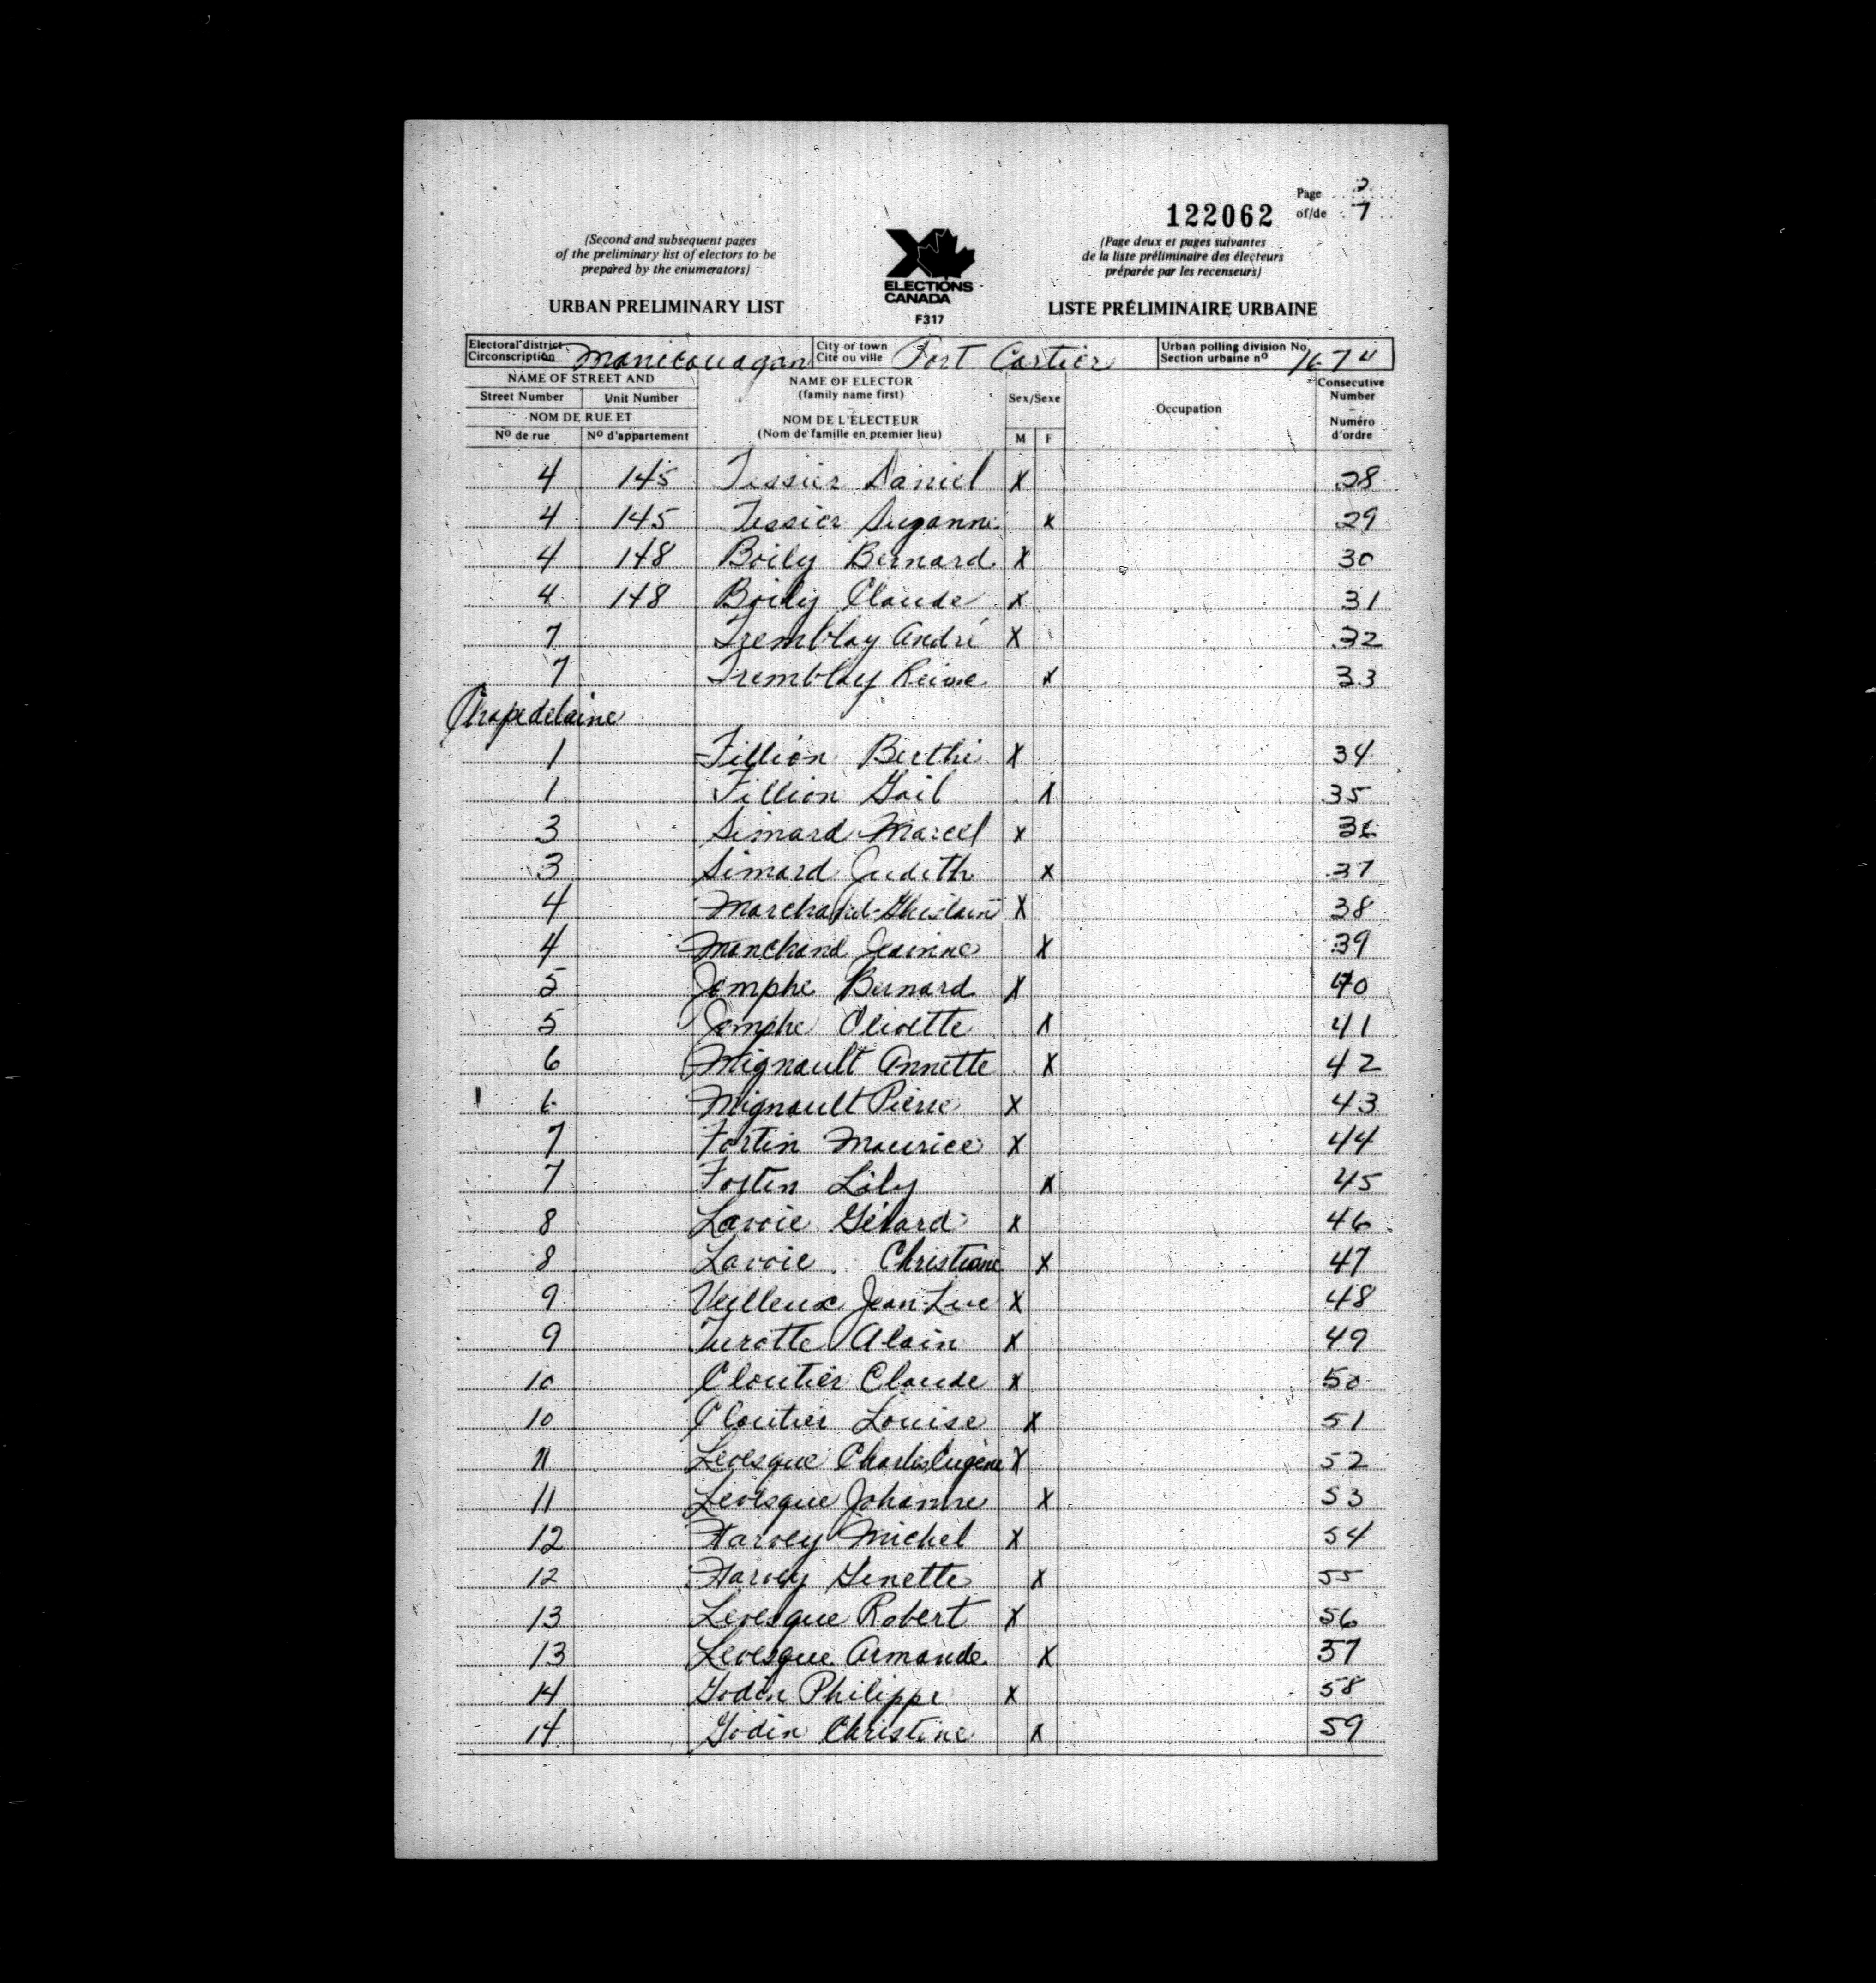 Page 2
122062 of/de 7
(Second and subsequent pages
of the preliminary list of electors to be
prepared by the enumerators)
URBAN PRELIMINARY LIST
ELECTIONS
CANADA
F317
(Page deux et pages suivantes
de la liste préliminaire des électeurs
préparée par les recenseurs)
LISTE PRÉLIMINAIRE URBAINE
Electoral district
Circonscription Manicouagan
City or town
Cité ou ville Port Cartier
Urban polling division No.
Section urbaine nº 167 4
NAME OF STREET AND
Street Number Unit Number
NOM DE RUE ET
Nº de rue Nº d'appartement
NAME OF ELECTOR
(family name first)
NOM DE L'ÉLECTEUR
(Nom de famille en premier lieu)
Sex/Sexe
M F
Occupation
Consecutive
Number
Numéro
d'ordre
4 145 Tessier Daniel X 28
4 145 Tessier Suzanne X 29
4 148 Boily Bernard X 30
4 148 Boily Claude X 31
7 Tremblay André X 32
7 Tremblay Reine X 33
Chapedelaine
1 Fillion Berthi X 34
1 Fillion Gail X 35
3 Simard Marcel X 36
3 Simard Judith X 37
4 Marchand Ghislain X 38
4 Marchand Jeanne X 39
5 Jomphe Bernard X 40
5 Jomphe Olivette X 41
6 Mignault Annette X 42
6 Mignault Pierre X 43
7 Fortin Maurice X 44
7 Fortin Lily X 45
8 Lavoie Gérard X 46
8 Lavoie Christiane X 47
9 Veilleux Jean-Luc X 48
9 Turotte Alain X 49
10 Cloutier Claude X 50
10 Cloutier Louise X 51
11 Levesque Charles Eugène X 52
11 Levesque Johanne X 53
12 Harvey Michel X 54
12 Harvey Ginette X 55
13 Levesque Robert X 56
13 Levesque Armande X 57
14 Godin Philippe X 58
14 Godin Christine X 59